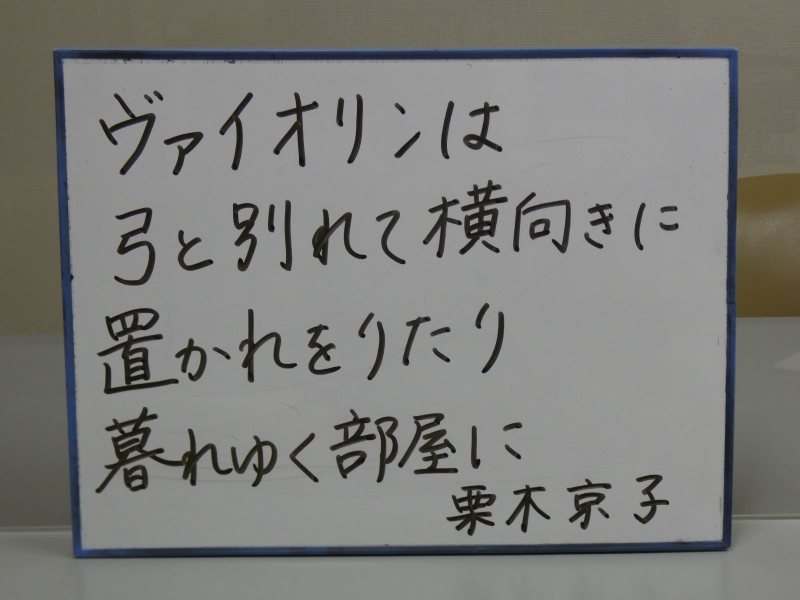 ヴァイオリンは
弓と別れて横向きに
置かれをりたり
暮れゆく部屋に
栗木京子